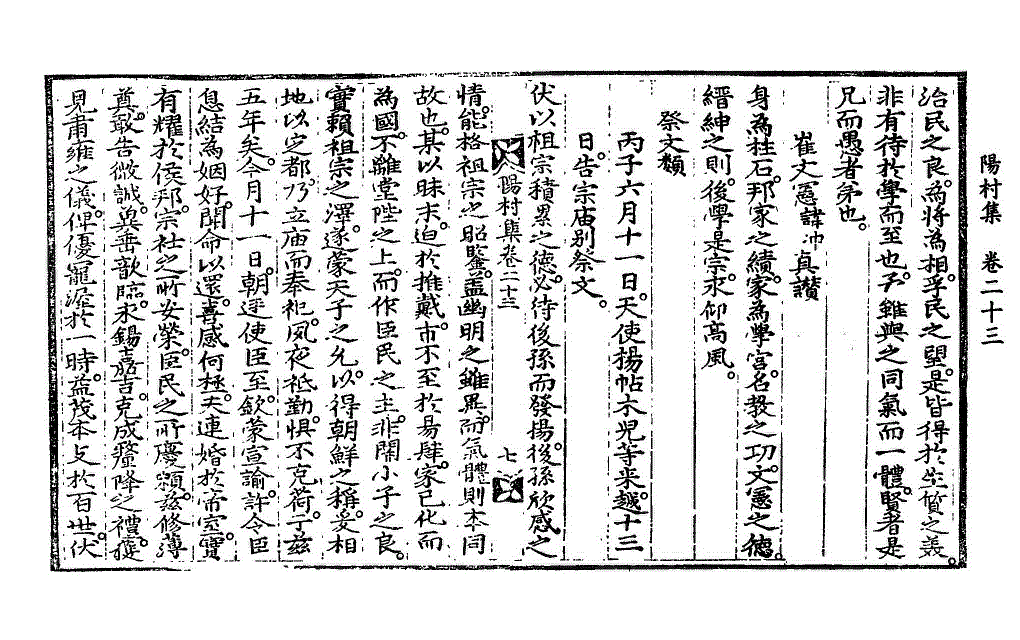 陽村集 卷二十三
治民之良。為將為相。孚民之望。是皆得於生質之義。
非有待於學而至也。予雖與之同氣而一體。賢者是
兄而愚者弟也。
崔文憲諱沖真讚
身為柱石。邦家之績。家為學宮。名敎之功。文憲之德。
縉紳之則。後學是宗。永仰高風。
祭文類
丙子六月十一日。天使楊帖木兒等来。越十三
日。告宗庙別祭文。
伏以祖宗積累之德。必待後孫而發揚。後孫欣感之
陽村集卷二十三 七
情。能格祖宗之昭鑒。盖幽明之雖異。而氣體則本同
故也。某以昧末。迫於推戴。市不至於易肆。家已化而
為國。不離堂陛之上。而作臣民之主。非關小子之良。
實賴祖宗之澤。遂蒙天子之允。以得朝鮮之稱。爰相
地以定都。乃立庙而奉祀。夙夜祗勤。惧不克荷。于玆
五年矣。今月十一日。朝廷使臣至。欽蒙宣諭。許令臣
息結為姻好。聞命以還。喜感何極。夫連婚於帝室。實
有耀於侯邦。宗社之所安榮。臣民之所慶頼。玆修薄
奠。敢告微誠。冀垂歆臨。永錫嘉吉。克成釐降之禮。獲
見肅雍之儀。俾優寵渥於一時。益茂本支於百世。伏